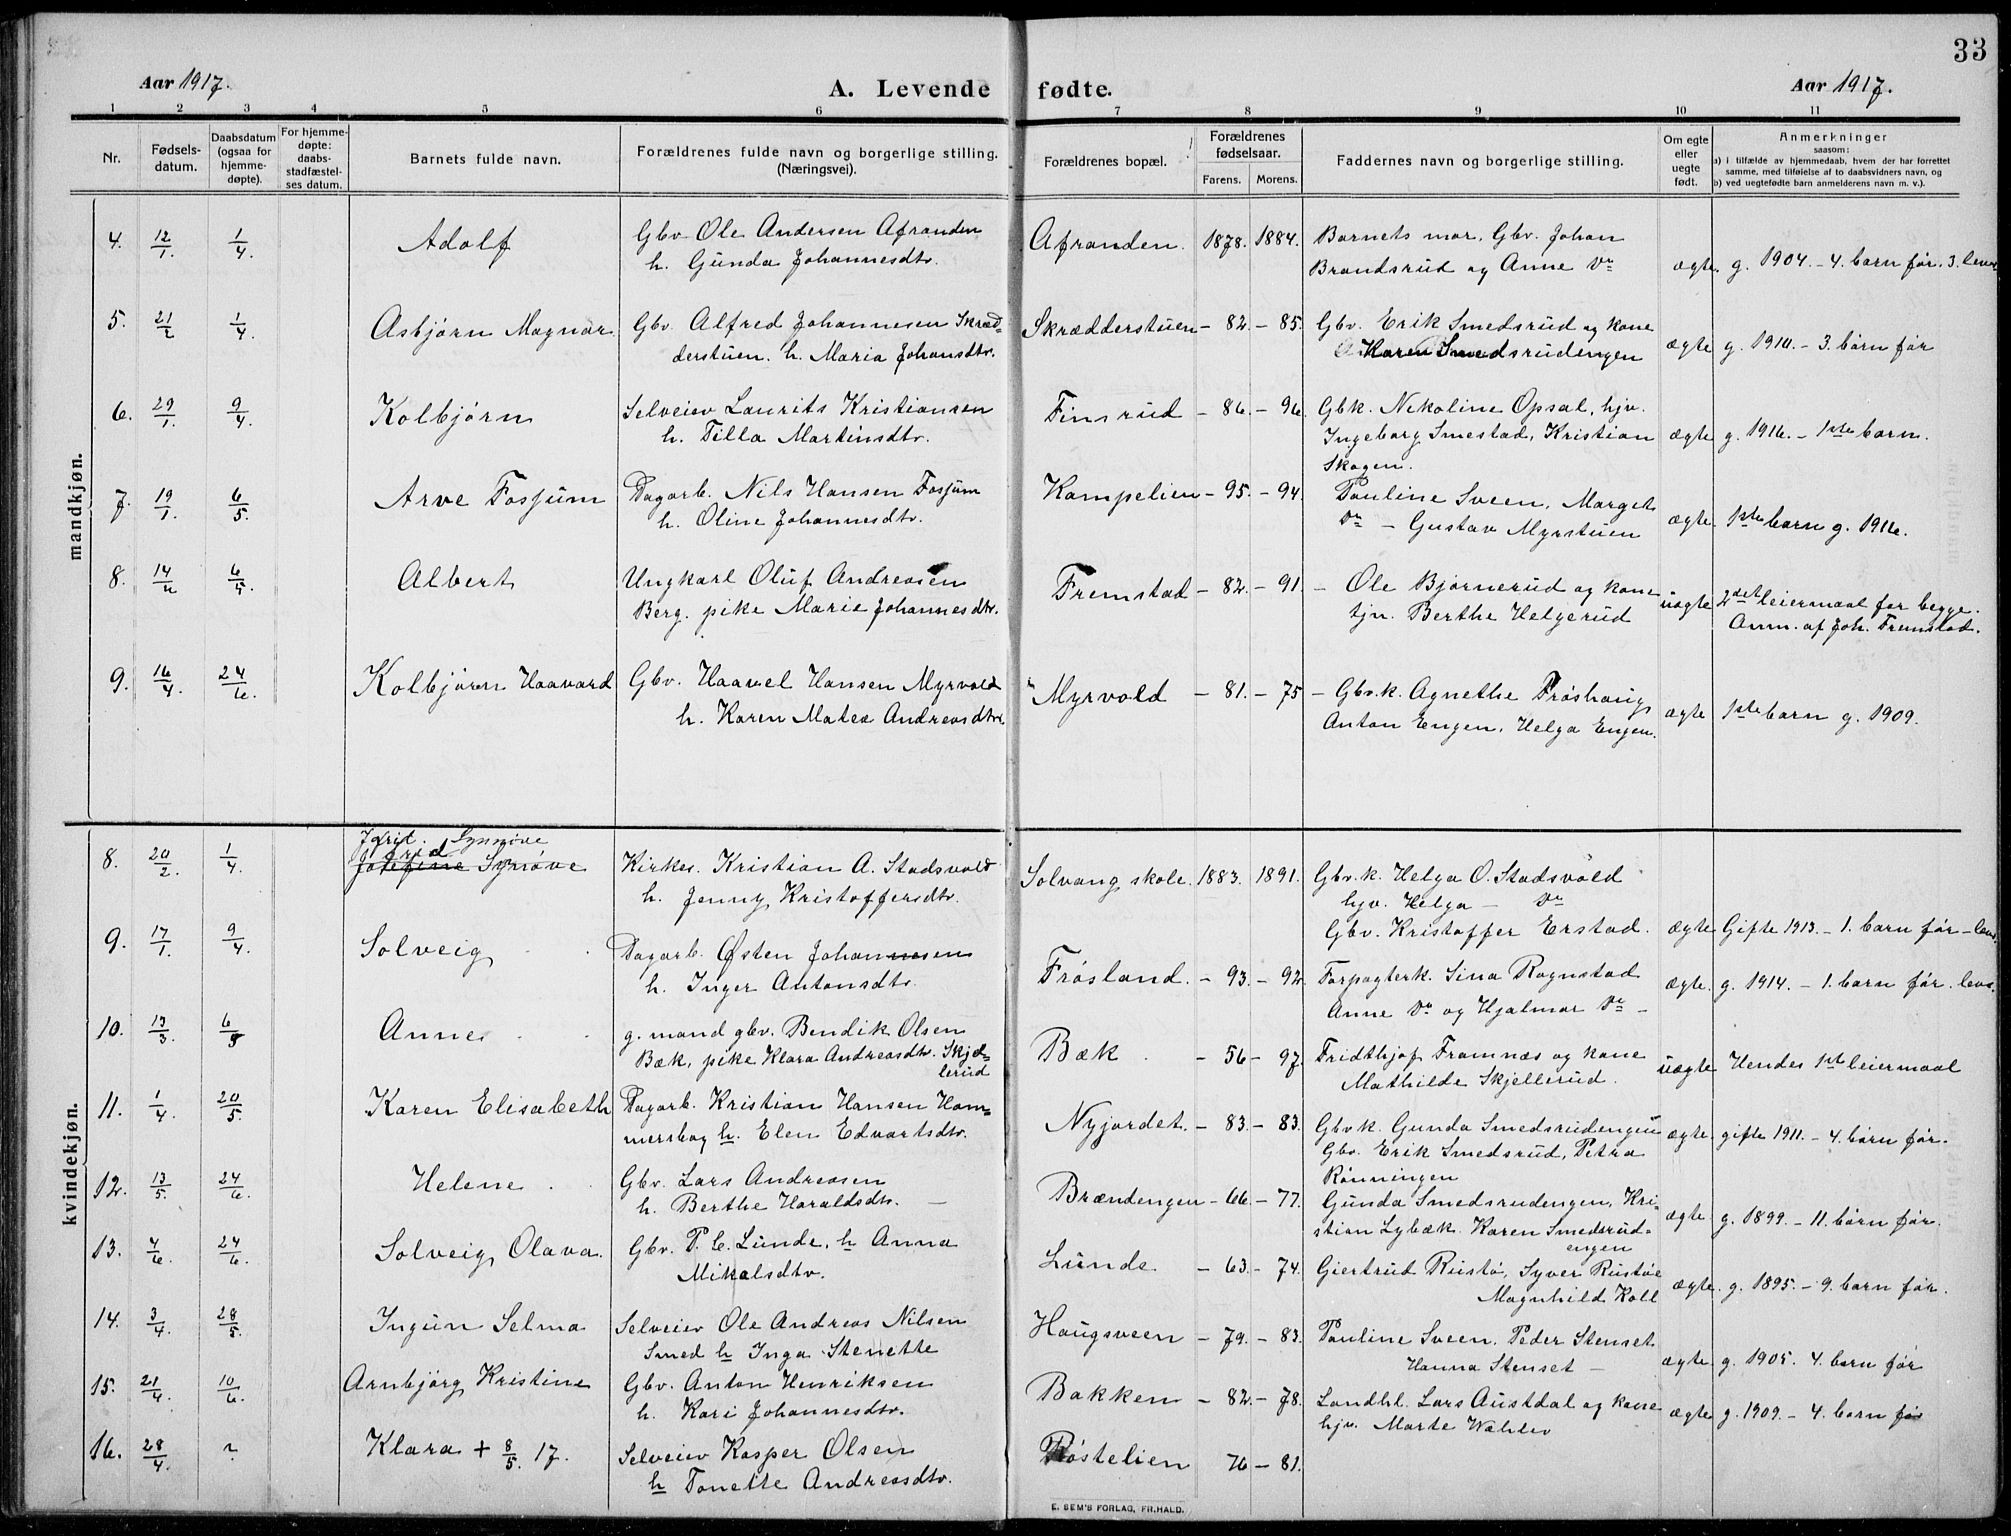 33
Aar 1917.
A. Levende fødte.
Aar 1917.
1 2 3 4 5 6 7 8 9 10 11
Nr.
Fødsels-
datum.
Daabsdatum
(ogsaa for
hjemme-
døpte).
For hjemme-
døpte:
daabs-
stadfæstel-
ses datum.
Barnets fulde navn.
Forældrenes fulde navn og borgerlige stilling.
(Næringsvei).
Forældrenes bopæl.
Forældrenes
fødselsaar.
Farens. Morens.
Faddernes navn og borgerlige stilling.
Om egte
eller
uegte
født.
Anmerkninger
saasom:
a) i tilfælde av hjemmedaab, hvem der har forrettet
samme, med tilføielse af to daabsvidners navn, og
b) ved uegtefødte barn anmelderens navn m. v.).
mandkjøn.
4. 12/1. 1/4. Adolf Gbr Ole Andersen Afranden Afranden. 1878. 1884. Barnets mor, Gbr. Johan
h. Gunda Johannesdtr. Brandsrud og Anne Do ægte. g. 1904. - 4. barn før. 3. lever
5. 21/2 1/4. Asbjørn Magnar Gbr. Alfred Johannesen Skræd= Skrædderstuen - 82. - 85. Gbr. Erik Smedsrud og kone
derstuen. h. Maria Johansdtr. Karen Smedsrudengen ægte g. 1910. - 3. børn før
6. 29/1. 9/4. Kolbjørn Selveier Laurits Kristiansen Finsrud - 86. - 96. Gbk. Nikoline Opsal, hjv.
h. Tilla Martinsdtr. Ingeborg Smestad, Kristian ægte g. 1916. - 1ste barn.
Skogen.
7. 19/1. 6/5. Arve Fosjum Dagarb. Nils Hansen Fosjum Kampelien - 95. - 94. Pauline Sveen, Margit
h. Oline Johannesdtr. Do - Gustav Myrstuen ægte. 1ste barn g. 1916.
8. 14/ 6/5. Albert Ungkarl Oluf Andreasen Fremstad - 82. - 91. - Ole Bjørnerud og kone
Berg. pike Marie Johannesdtr. tjn. Berthe Helgerud uægte 2det leiermaal for begge.
Anm. af Joh. Fremstad.
9. 16/4. 24/6. Kolbjørn Haavard Gbr. Haavel Hansen Myrvold Myrvold - 81. - 75 - Gbr.k. Agnethe Frøshaug,
h. Karen Matea Andreasdtr. Anton Engen, Helga Engen. ægte 1ste barn g. 1909.
kvindekjøn.
Jofrid. Synnøve
8. 20/2. 1/4. Josefine Synøve Kirkes. Kristian A. Stadsvold Solvang skole. 1883. 1891. Gbr.k. Helga O. Stadsvold
h. Jenny Kristoffersdtr. hjv. Helga - Do
Gbr. Kristoffer Erstad. ægte Gifte 1913. - 1. barn før - lev.
9. 17/1. 9/4. Solveig Dagarb. Østen Johannesen Frøsland. - 93. - 92. Forpagterk. Sina Rognstad
h. Inger Antonsdtr. Anne Do og Hjalmar Do - ægte. g. 1914. - 1. barn før. lever.
10. 13/3. 6/5 Anne g. mand gbr. Bendik Olsen Bæk - 56 - 97. Fridthjof Framnæs og kone
Bæk, pike Klara Andreasdtr. Skjel= Mathilde Skjellerud. uægte Hendes 1ste leiermaal
lerud
11. 1/4. 20/5. Karen Elisabeth Dagarb. Kristian Hansen Ham= Nyjordet. - 83. - 83. Gbr.k. Gunda Smedsrudengen
mersbog h. Elen Edvartsdtr. Gbr. Erik Smedsrud, Petra ægte. gifte 1911. - 4. børn før.
Rønningen
12. 13/5. 24/6. Helene Gbr. Lars Andreasen Brændengen - 66. - 77. Gunda Smedsrudengen, Kri-
h. Berthe Haraldsdtr. - stian Lybæk. Karen Smedsrud- ægte. g. 1899. - 11. børn før.
engen
13. 4/6. 24/6. Solveig Olava. Gbr. P. C. Lunde, h Anna Lunde. - 63. - 74. Giertrud Rustø, Syver Rustøe
Mikalsdtr. Magnhild Koll ægte. g. 1895. - 9. barn før.
14. 3/4. 28/5. Ingun Selma Selveier Ole Andreas Nilsen Haugsveen - 79. - 83. Pauline Sveen. Peder Stenset
Smed h Inga Stenette Hanna Stenset - ægte g. 1905. 4. barn før
15. 21/4. 10/6. Arnbjørg Kristine Gbr. Anton Henriksen Bakken - 82. - 78. Landhl. Lars Austdal og kone
h. Kari Johannesdtr. hjv. Marte Wahler ægte g. 1909. - 4. barn før
16. 28/4. ~ Klara + 8/5. 17. Selveier Kasper Olsen Røstelien 76 - 81.
h Tonette Andreasdtr.
E. SEM'S FORLAG, FR.HALD.